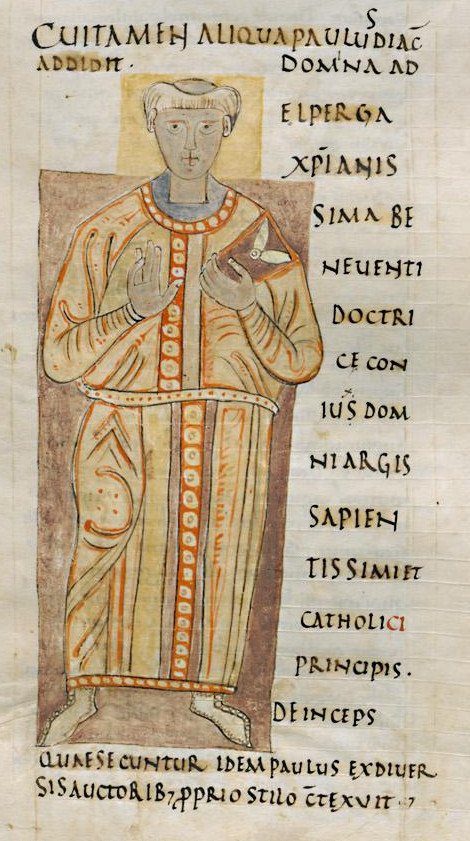 CUI TAMEN ALIQUA PAULUS DIAC̄
ADDIDIT. DOMINA AD
ELPERGA
XP̄IANIS
SIMA BE
NEUENTI
DOCTRI
CE CON
IUS DOM
NI ARGIS
SAPIEN
TISSIMI ET
CATHOLICI
PRINCIPIS.
DEINCEPS
QUAE SECUNTUR IDEM PAULUS EX DIUER
SIS AUCTORIB; ꝓPRIO STILO C̄TEXUIT